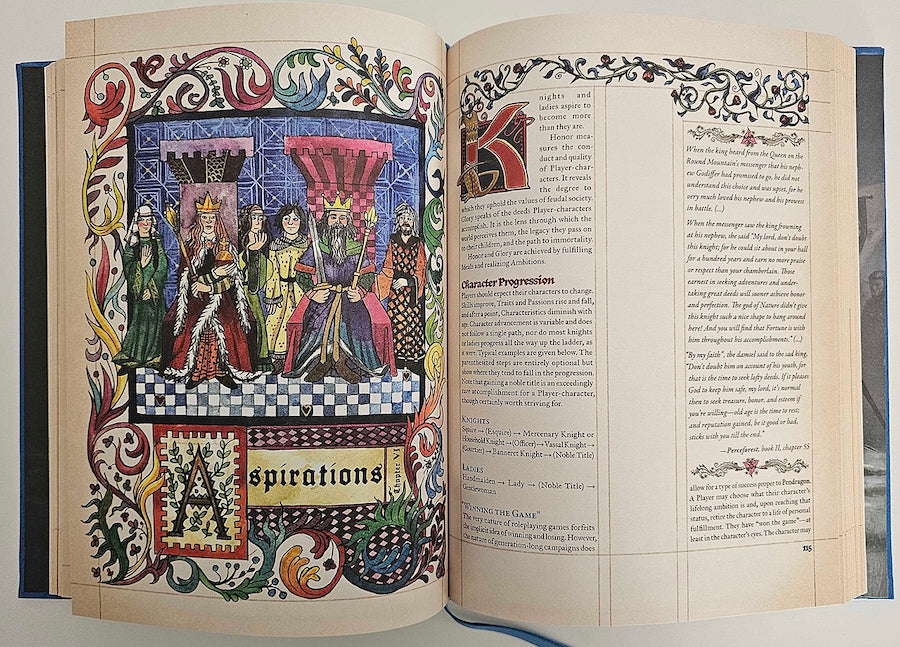 Aspirations
Chapter VI
Knights and
ladies aspire to
become more
than they are.
Honor mea-
sures the con-
duct and quality
of Player-char-
acters. It reveals
the degree to
which they uphold the values of feudal society.
Glory speaks of the deeds Player-characters
accomplish. It is the lens through which the
world perceives them, the legacy they pass on
to their children, and the path to immortality.
Honor and Glory are achieved by fulfilling
Ideals and realizing Ambitions.
Character Progression
Players should expect their characters to change.
Skills improve, Traits and Passions rise and fall,
and after a point, Characteristics diminish with
age. Character advancement is variable and does
not follow a single path, nor do most knights
or ladies progress all the way up the ladder, as
it were. Typical examples are given below. The
parenthesized steps are entirely optional but
show where they tend to fall in the progression.
Note that gaining a noble title is an exceedingly
rare accomplishment for a Player-character,
though certainly worth striving for.
KNIGHTS
Squire → (Esquire) → Mercenary Knight or
Household Knight → (Officer) → Vassal Knight →
(Courtier) → Banneret Knight → (Noble Title)
LADIES
Handmaiden → Lady → (Noble Title) →
Gentlewoman
"WINNING THE GAME"
The very nature of roleplaying games forfeits
the implicit idea of winning and losing. However,
the nature of generation-long campaigns does
When the king heard from the Queen on the
Round Mountain's messenger that his neph-
ew Godiffer had promised to go, he did not
understand this choice and was upset, for he
very much loved his nephew and his prowess
in battle. (...)
When the messenger saw the king frowning
at his nephew, she said "My lord, don't doubt
this knight; for he could sit about in your hall
for a hundred years and earn no more praise
or respect than your chamberlain. Those
earnest in seeking adventures and under-
taking great deeds will sooner achieve honor
and perfection. The god of Nature didn't give
this knight such a nice shape to hang around
here! And you will find that Fortune is with
him throughout his accomplishments." (...)
"By my faith", the damsel said to the sad king,
"Don't doubt him on account of his youth, for
that is the time to seek lofty deeds. If it pleases
God to keep him safe, my lord, it's normal
then to seek treasure, honor, and esteem if
you're willing—old age is the time to rest;
and reputation gained, be it good or bad,
sticks with you till the end."
—Perceforest, book II, chapter 55
allow for a type of success proper to Pendragon.
A Player may choose what their character's
lifelong ambition is and, upon reaching that
status, retire the character to a life of personal
fulfillment. They have "won the game"—at
least in the character's eyes. The character may
115